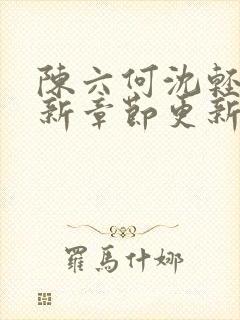 陳六何沈輕
新章節更新
羅馬什娜